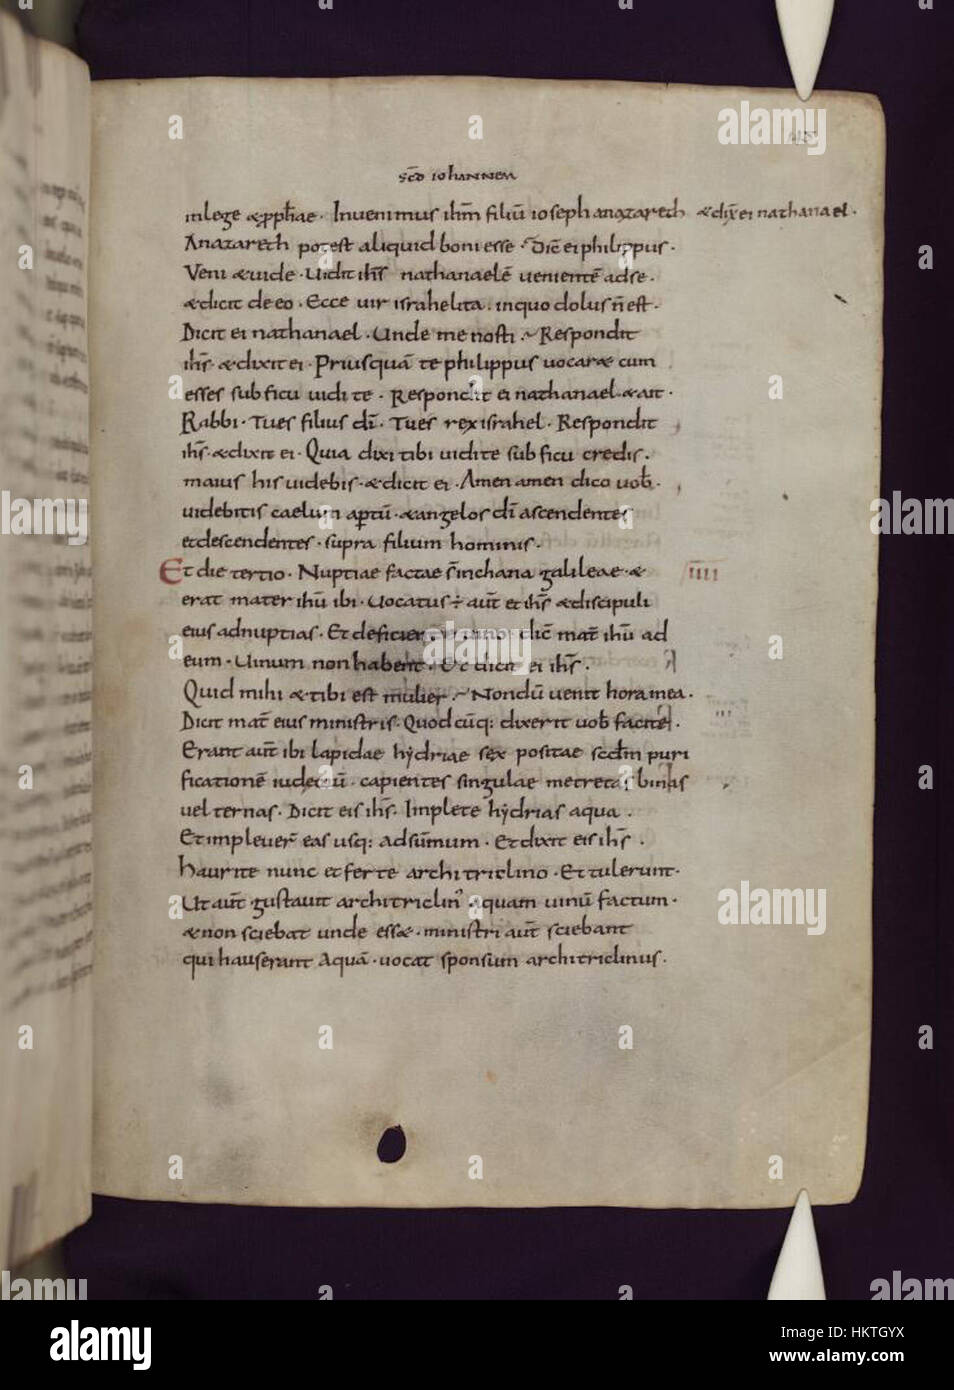 scd̄ iohannem
inlege &pph̄ae · Inuenimus ihm̄ filiū ioseph anazareth &dix̄ ei nathanael ·
Anazareth potest aliquid boni esse · Dic̄ ei philippus ·
Veni &uide · Uidit ihs̄ nathanaelē uenientē adse ·
&dicit de eo · Ecce uir israhelita · inquo dolus n̄ est ·
Dicit ei nathanael · Unde me nosti · Respondit
ihs̄ · &dixit ei · Priusquā te philippus uocar& cum
esses sub ficu uidi te · Respondit ei nathanael · & ait ·
Rabbi · Tu es filius dī · Tu es rex israhel · Respondit
ihs̄ · &dixit ei · Quia dixi tibi uidi te sub ficu credis ·
maius his uidebis · &dicit ei · Amen amen dico uob̄ ·
uidebitis caelum aptū · &angelos dī ascendentes
et descendentes · supra filium hominis ·
Et die tertio · Nuptiae factae s̄ in chana galileae · &
IIII
erat mater ihū ibi · Uocatus ÷ aut̄ et ihs̄ &discipuli
eius ad nuptias · Et deficiente uino · dic̄ mat̄ ihū ad
eum · Uinum non habent · Et dicit ei ihs̄ ·
Quid mihi & tibi est mulier · Nondū uenit hora mea ·
Dicit mat̄ eius ministris · Quodcūq: dixerit uob̄ facite ·
Erant aut̄ ibi lapidae hẏdriae sex positae scdm̄ puri
ficationē iudeorū · capientes singulae metretas binas
uel ternas · Dicit eis ihs̄ · Implete hẏdrias aqua ·
Et impleuer̄ eas usq: ad sūmum · Et dixit eis ihs̄ ·
haurite nunc et ferte architriclino · Et tulerunt ·
Ut aut̄ gustauit architriclin' aquam uinū factum ·
&non sciebat unde ess& · ministri aut̄ sciebant
qui hauserant aquā · uocat sponsum architriclinus ·
alamy
alamy
alamy
alamy
alamy
alamy
alamy
alamy
alamy
Image ID: HKTGYX
www.alamy.com